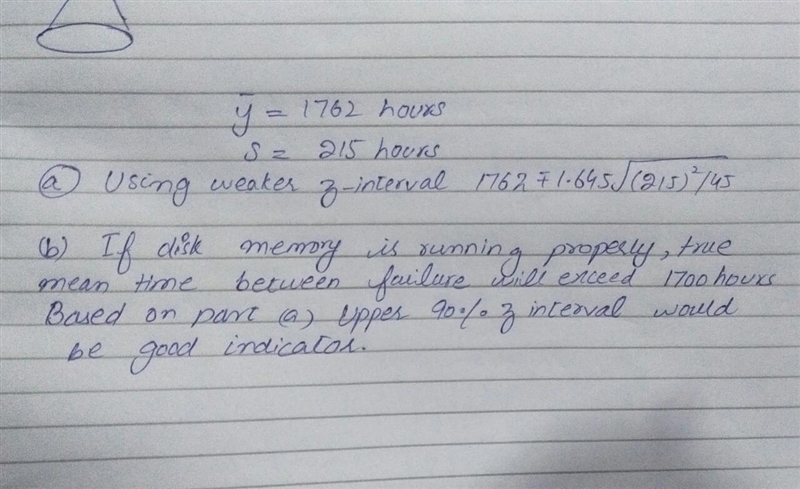 ȳ = 1762 hours
S = 215 hours
(a) Using weaker z-interval 1762 ∓ 1.645√(215)²/45
(b) If disk memory is running properly, true
mean time between failure will exceed 1700 hours
Based on part (a) Upper 90% z interval would
be good indicator.